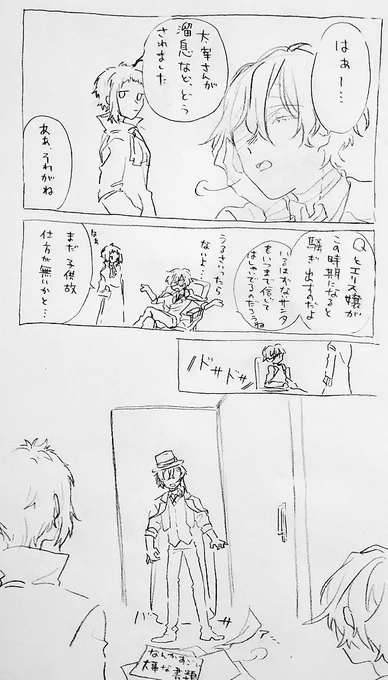 はぁー…
太宰さんが
溜息など、どう
されました
ああ、うわがね
Qとエリス嬢が
この時期になると
騒ぎ出すのだよ
いるはかなサンタ
をいつまで信じて
はしゃいでるのだろうね
うるさいったら
ないよ…
はぁ
まだ子供故
仕方が無いかと…
ドサドサッ
バ サ
なんかすごい
大事な書類